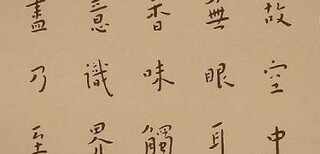 故空中
無眼耳
香味觸
意識界
盡乃至